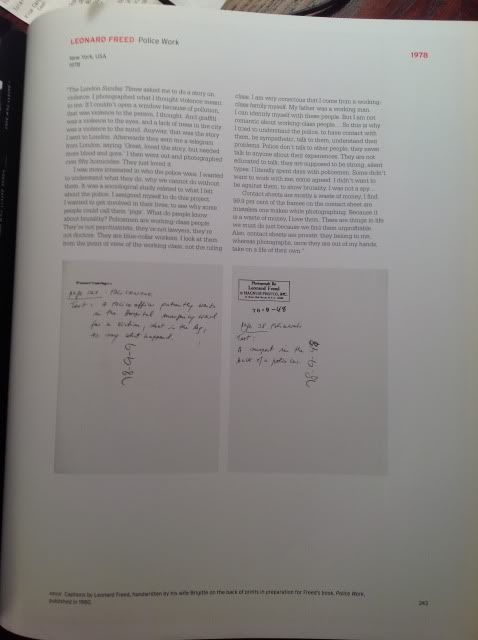 LEONARD FREED Police Work
1978
New York, USA
1978
"The London Sunday Times asked me to do a story on
violence. I photographed what I thought violence meant
to me. If I couldn't open a window because of pollution,
that was violence to the person, I thought. And graffiti
was violence to the eyes, and a lack of trees in the city
was a violence to the mind. Anyway, that was the story
I sent to London. Afterwards they sent me a telegram
from London, saying 'Great, loved the story, but needed
more blood and gore.' I then went out and photographed
over fifty homicides. They just loved it.
I was more interested in who the police were. I wanted
to understand what they do, why we cannot do without
them. It was a sociological study related to what I felt
about the police. I assigned myself to do this project.
I wanted to get involved in their lives; to see why some
people could call them 'pigs'. What do people know
about brutality? Policemen are working-class people.
They're not psychiatrists, they're not lawyers, they're
not doctors. They are blue-collar workers. I look at them
from the point of view of the working class, not the ruling
class. I am very conscious that I come from a working-
class family myself. My father was a working man.
I can identify myself with these people. But I am not
romantic about working-class people. ...So this is why
I tried to understand the police, to have contact with
them, be sympathetic, talk to them, understand their
problems. Police don't talk to other people; they never
talk to anyone about their experiences. They are not
educated to talk; they are supposed to be strong, silent
types. I literally spent days with policemen. Some didn't
want to work with me, some agreed. I didn't want to
be against them, to show brutality. I was not a spy. ...
Contact sheets are mostly a waste of money. I find
99.9 per cent of the frames on the contact sheet are
mistakes one makes while photographing. Because it
is a waste of money, I love them. There are things in life
we must do just because we find them unprofitable.
Also, contact sheets are private: they belong to me,
whereas photographs, once they are out of my hands,
take on a life of their own."
Policework
Text: A Police officer patiently waits
in the Hospital emergency ward
for a victim, shot in the leg,
to say what happened.
Photograph By
Leonard Freed
MAGNUM PHOTOS, INC.
Text:
A suspect in the
back of a police car
Above Captions by Leonard Freed, handwritten by his wife Brigitte on the back of prints in preparation for Freed's book, Police Work,
published in 1980.
243